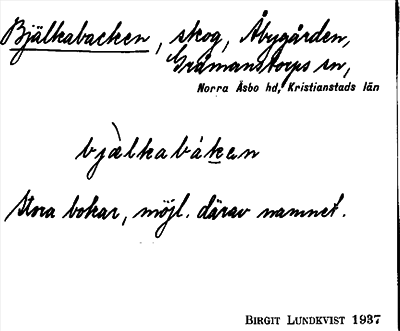 Bjälkabacken, skog, Åbygården,
Gråmanstorps sn,
Norra Åsbo hd, Kristianstads län
bjælkabákæn
Stora bokar, möjl. därav namnet.
BIRGIT LUNDKVIST 1937